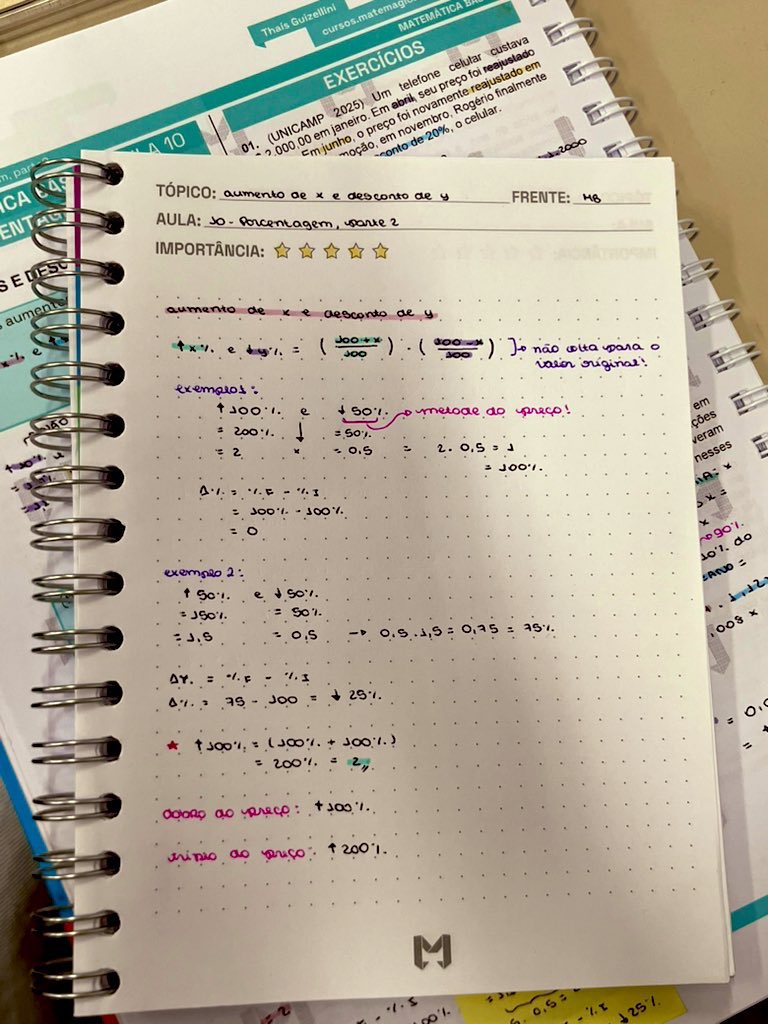 Thaís Guizellini
cursos.matemagic
MATEMÁTICA BÁS
EXERCÍCIOS
01. (UNICAMP 2025) Um telefone celular custava
2.000,00 em janeiro. Em abril, seu preço foi reajustado
Em junho, o preço foi novamente reajustado em
moção, em novembro, Rogério finalmente
conto de 20%, o celular.
TÓPICO: aumento de x e desconto de y FRENTE: MB
AULA: 10 - Porcentagem, parte 2
IMPORTÂNCIA:
aumento de x e desconto de y
↑x% e ↓y% = (100 + x / 100) . (100 - x / 100) ]→ não volta para o
valor original!
exemplo 1:
↑100% e ↓50% → metade do preço!
= 200% = 50%
= 2 x = 0,5 = 2 . 0,5 = 1
= 100%
Δ% = %F - %I
= 100% - 100%
= 0
exemplo 2:
↑50% e ↓50%
= 150% = 50%
= 1,5 = 0,5 → 0,5 . 1,5 = 0,75 = 75%
Δ% = %F - %I
Δ% = 75 - 100 = ↓25%
★ ↑100% = (100% + 100%)
= 200% = 2,,
dobro do preço: ↑100%
triplo do preço: ↑200%